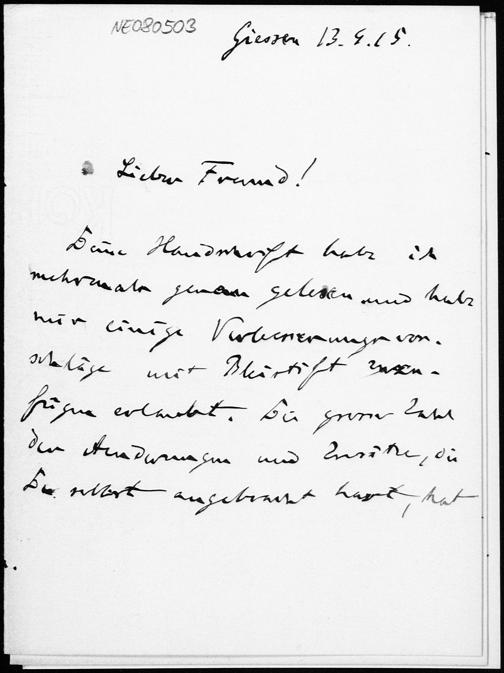 NE080503
Giessen 13.4.15.
Lieber Freund!
Deine Handschrift habe ich
mehrmals genau gelesen und habe
mir einige Verbesserungsvor-
schläge mit Bleistift zuzu-
fügen erlaubt. Die grosse Zahl
der Aenderungen und Zusätze, die
Du selbst angebracht hast, hat